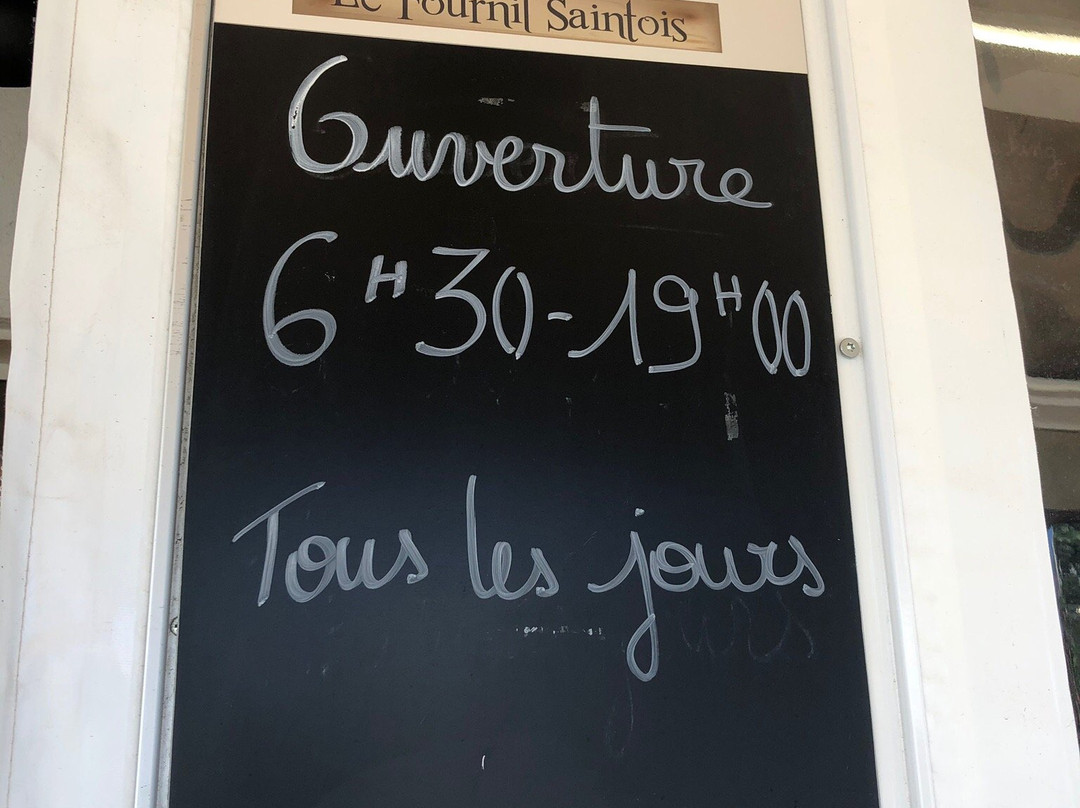 Le Fournil Saintois
Ouverture
6H30-19H00
Tous les jours